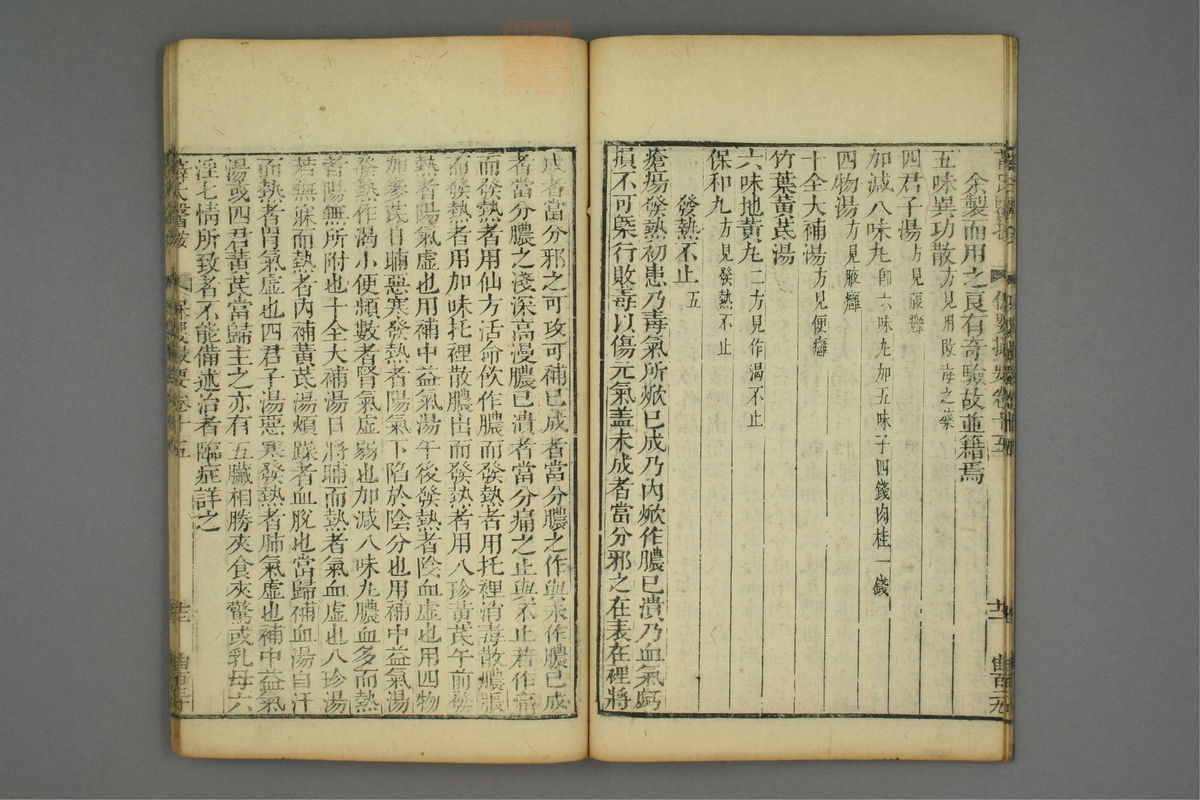 余製而用之良有奇驗故並籍焉
五味異功散方見用敗毒之藥
四君子湯方見腹癰
加減八味丸即六味丸加五味子四錢肉桂一錢
四物湯方見腋癰
十全大補湯方見便癰
竹葉黃芪湯
六味地黃丸二方見作渴不止
保和丸方見發熱不止
發熱不止五
瘡瘍發熱初患乃毒氣所焮已成乃內焮作膿已潰乃血氣虧
損不可槩行敗毒以傷元氣盖未成者當分邪之在表在裡將
成者當分邪之可攻可補已成者當分膿之作與未作膿已成
者當分膿之淺深高漫膿已潰者當分痛之止與不止若作痛
而發熱者用仙方活命飲作膿而發熱者用托裡消毒散膿脹
而發熱者用加味托裡散膿出而發熱者用八珍黃芪午前發
熱者陽氣虛也用補中益氣湯午後發熱者陰血虛也用四物
加參芪日晡惡寒發熱者陽氣下陷於陰分也用補中益氣湯
發熱作渴小便頻數者腎氣虛弱也加減八味丸膿血多而熱
者陽無所附也十全大補湯日將晡而熱者氣血虛也八珍湯
若無寐而熱者內補黃芪湯煩躁者血脫也當歸補血湯自汗
而熱者胃氣虛也四君子湯惡寒發熱者肺氣虛也補中益氣
湯或四君黃芪當歸主之亦有五臟相勝夾食夾驚或乳母六
淫七情所致者不能備述治者臨症詳之
薛氏醫按 保嬰撮要卷十五